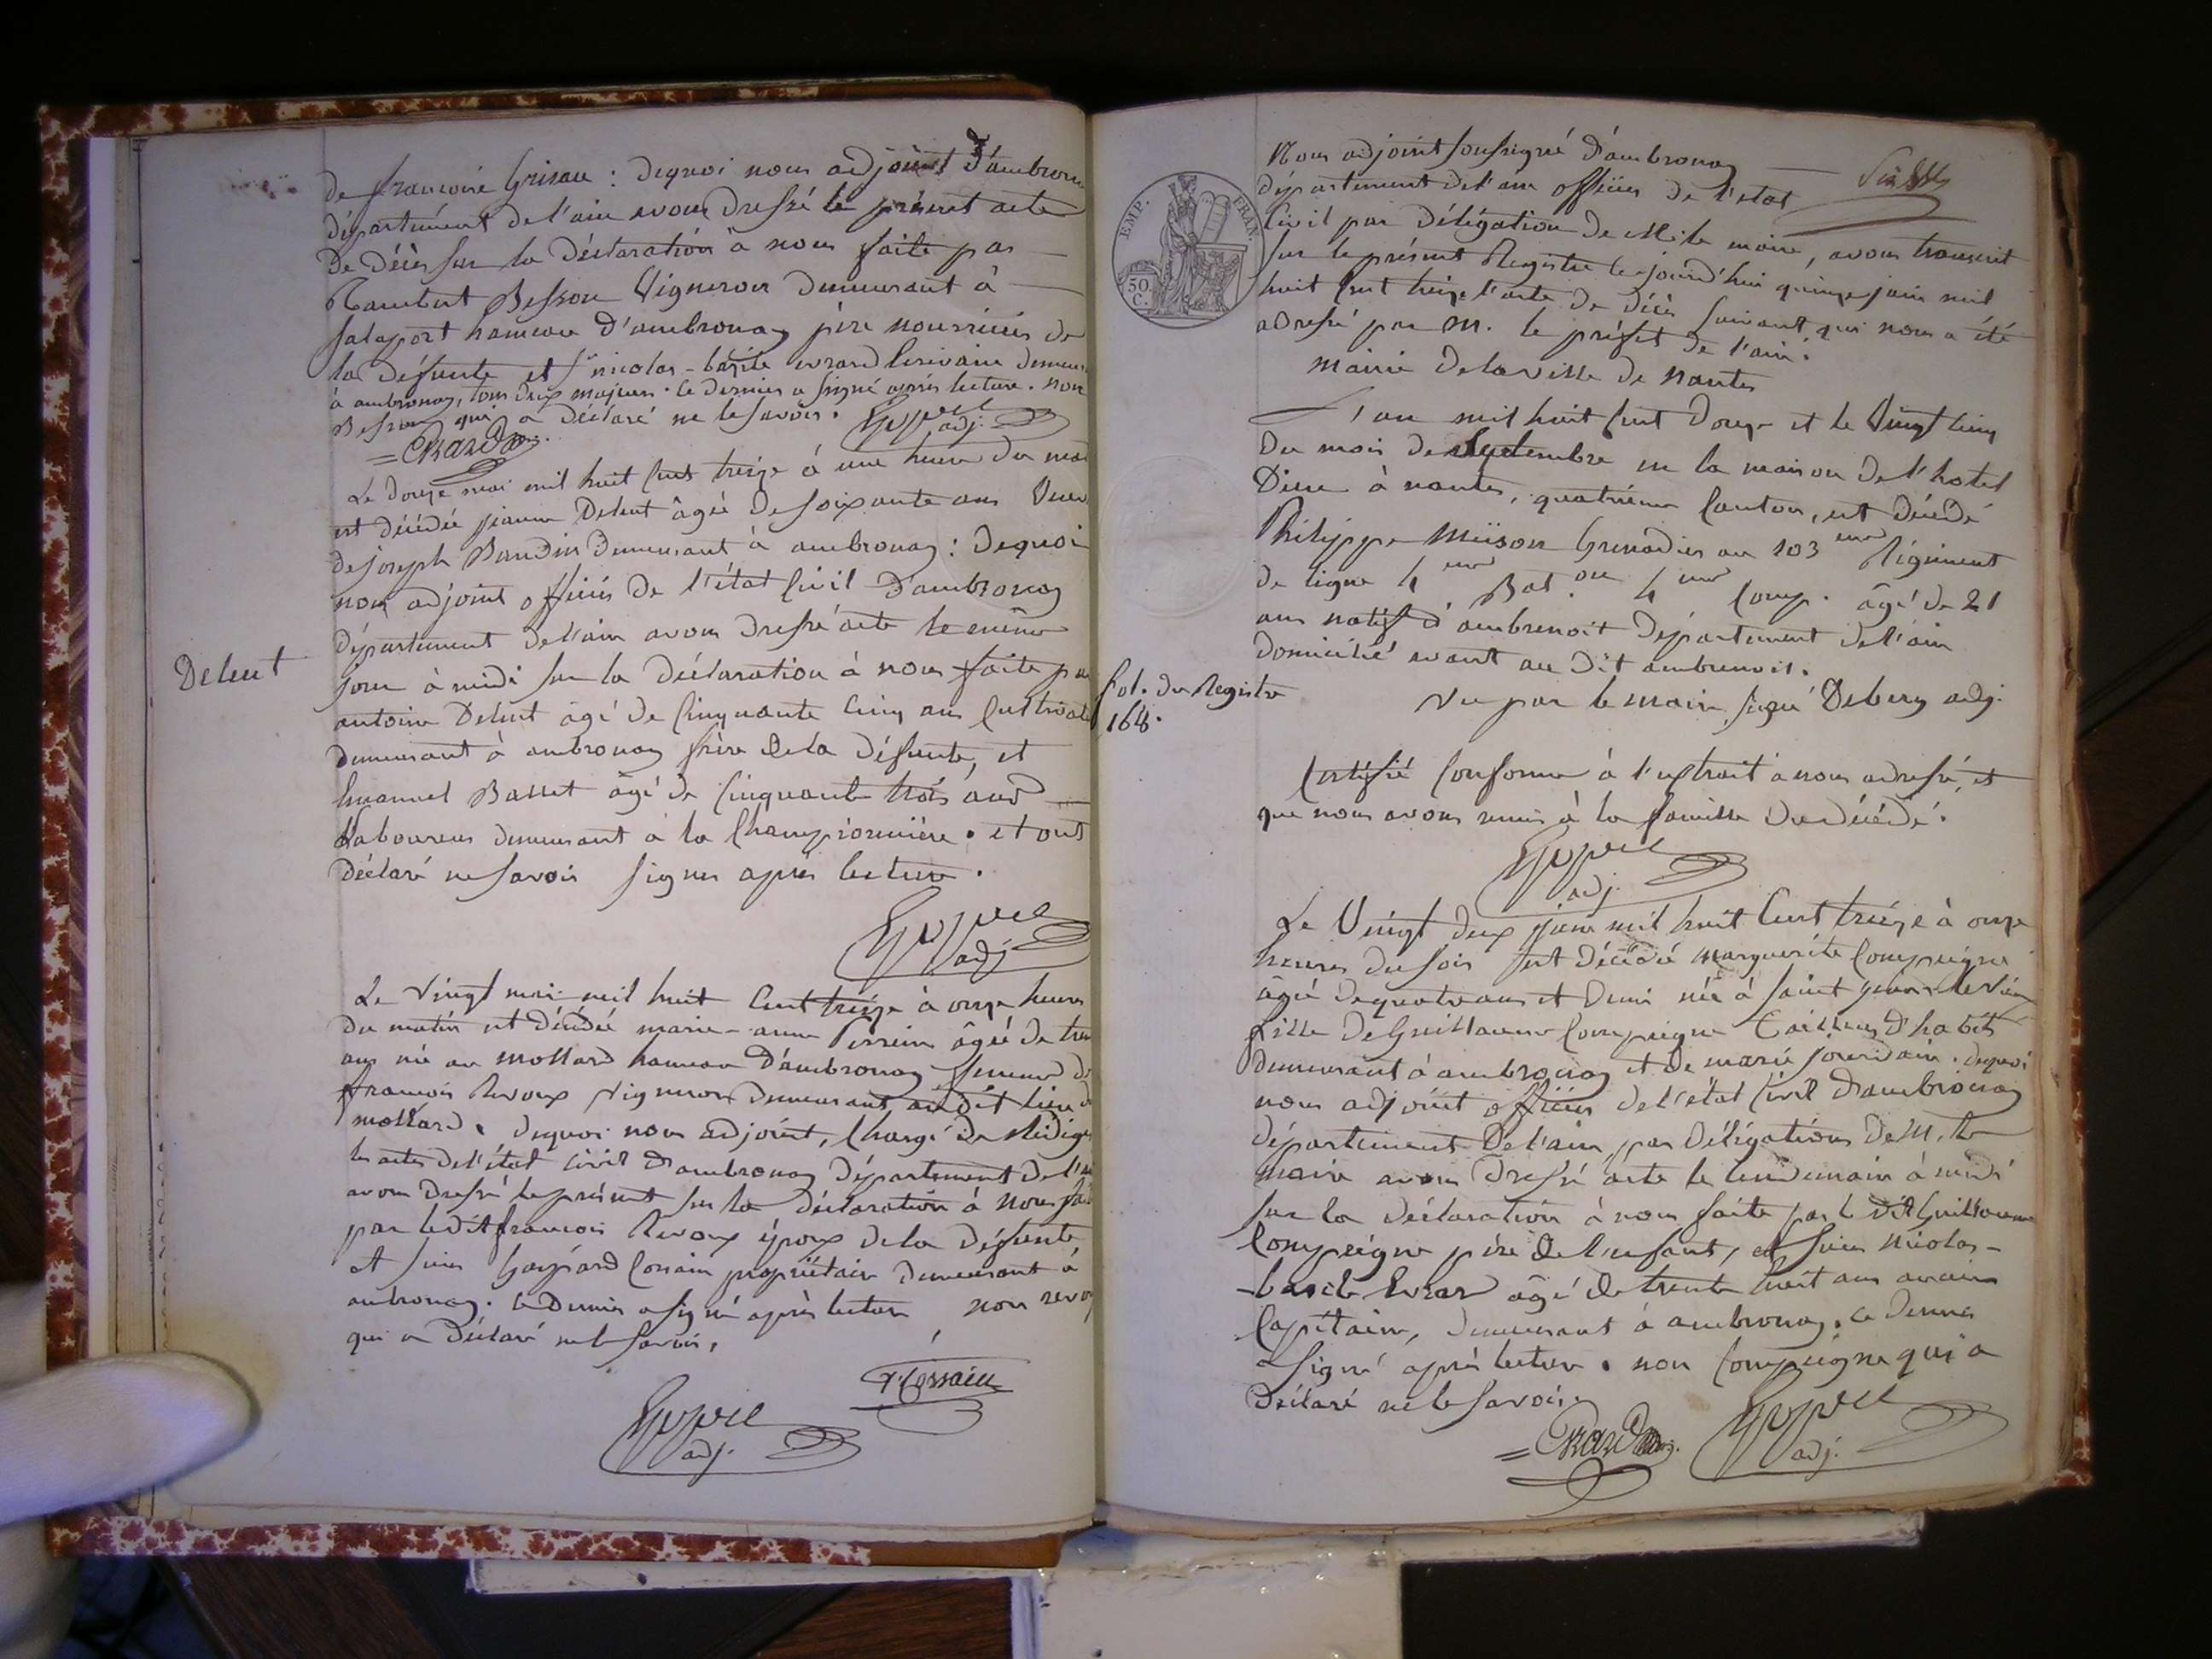 de francoise Grisau : dequoi nous adjoint d'ambrona
département de l'ain avons dressé le présent acte
de décès sur la déclaration à nous faite par
Rambert Besson Vigneron demeurant à
salaport hameau d'ambronay père nourricier de
la défunte et sr nicolas-bazile evrard Ecrivain demeur
à ambronay, tous deux majeurs. le dernier a signé après lecture. non
Besson qui a déclaré ne le savoir.
adj.
= Evrard
Le douze mai mil huit cent treize à une heure du mat
est décédée jeanne Delent âgée de soixante ans Veuve
de joseph Baudin demeurant à ambronay : dequoi
nous adjoint officier de l'état civil d'ambronay
département de l'ain avons dressé acte le même
jour à midi sur la déclaration à nous faite pa
Delent
antoine Delent âgé de cinquante cinq ans cultivate
demeurant à ambronay frère de la défunte, et
Emanuel Ballet âgé de cinquante trois ans
Laboureur demeurant à la Championnière. et ont
déclaré ne savoir signer après lecture.
adj
Le vingt mai mil huit cent treize à onze heures
du matin est décédée marie-anne Perrin âgée de tren
ans née au mollard hameau d'ambronay femme de
francois Revoux Vigneron demeurant au dit lieu d
mollard. dequoi nous adjoint, chargé de Rédiger
les actes de l'état civil d'ambronay département de l'ain
avons dressé le présent sur la déclaration à nous fai
par le dit francois Revoux époux de la défunte
et sieur Gaspard Cossain propriétaire demeurant à
ambronay. le dernier a signé après lecture non revoux
qui a déclaré ne le savoir.
G. Cossain
adj.
Nous adjoint soussigné d'ambronay
département de l'ain officier de l'état
civil par délégation de M. le maire, avons transcrit
sur le présent Registre le jourd'hui quinze juin mil
huit cent treize l'acte de décès suivant qui nous a été
adressé par M. le préfet de l'ain.
EMP. FRAN.
50 C.
mairie de la ville de Nantes
L'an mil huit cent douze et le Vingt cinq
du mois de septembre en la maison de l'hotel
Dieu à nantes, quatrième canton, est décédé
Philippe Miison Grenadier au 103eme Régiment
de ligne 4eme Baton 4eme Comp. âgé de 21
ans natif d'ambrenoit département de l'ain
domicilié avant au dit ambrenoit.
fol. du Registre
168.
Vu par le maire signé Debery adj.
Certifié conforme à l'extrait à nous adressé, et
que nous avons remis à la famille du décédé.
adj.
Le Vingt deux juin mil huit cent treize à onze
heures du soir est décédé marguerite Compeigne
âgée de quatre ans et demi née à saint jean le Vieux
fille de Guillaume Compeigne tailleur d'habits
demeurant à ambronay et de marie jourdain. dequoi
nous adjoint officier de l'état civil d'ambronay
département de l'ain, par délégation de M. le
maire avons dressé acte le lendemain à midi
sur la déclaration à nous faite par le dit Guillaume
Compeigne père de l'enfant, et sieur nicolas-
-basile Evrard âgé de trente huit ans ancien
Capitaine, demeurant à ambronay. ce dernier
a signé après lecture. non Compeigne qui a
déclaré ne le savoir.
= Evrard
adj.